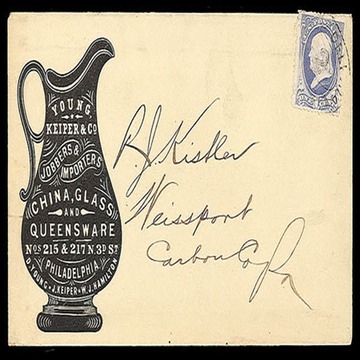 YOUNG,
KEIPER & CO
JOBBERS &
IMPORTERS
CHINA, GLASS
AND
QUEENSWARE
Nos 215 & 217 N. 3D ST
PHILADELPHIA
D. YOUNG • J. KEIPER • W. J. HAMILTON
P. J. Kistler
Weissport
Carbon Co Pa